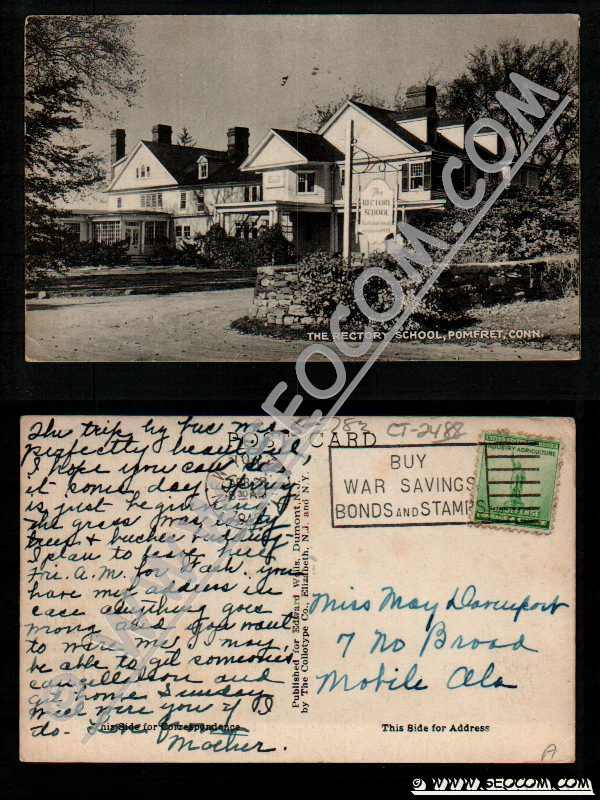 The
RECTORY
SCHOOL
THE RECTORY SCHOOL, POMFRET, CONN.
SEOCOM.COM
The trip by bus was
perfectly beautiful,
I hope you can do
it some day. Spring
is just beginning
the grass
trees & bushes budding.
I plan to leave here
Fri. A.M. for Wash. you
have my address in
case anything goes
wrong and you want
to wire me. I may
be able to get someone's
cancellation and
get home Sunday
will wire you if I
do.
Mother.
This Side for Correspondence
POST CARD
CT-2488
BUY
WAR SAVINGS
BONDS AND STAMPS
INDUSTRY AGRICULTURE
DEFENSE
Published for Edward Wells, Dumont, N.J.
by The Collotype Co., Elizabeth, N.J. and N.Y.
Miss May Davenport
7 No Broad
Mobile Ala
This Side for Address
A
© WWW.SEOCOM.COM